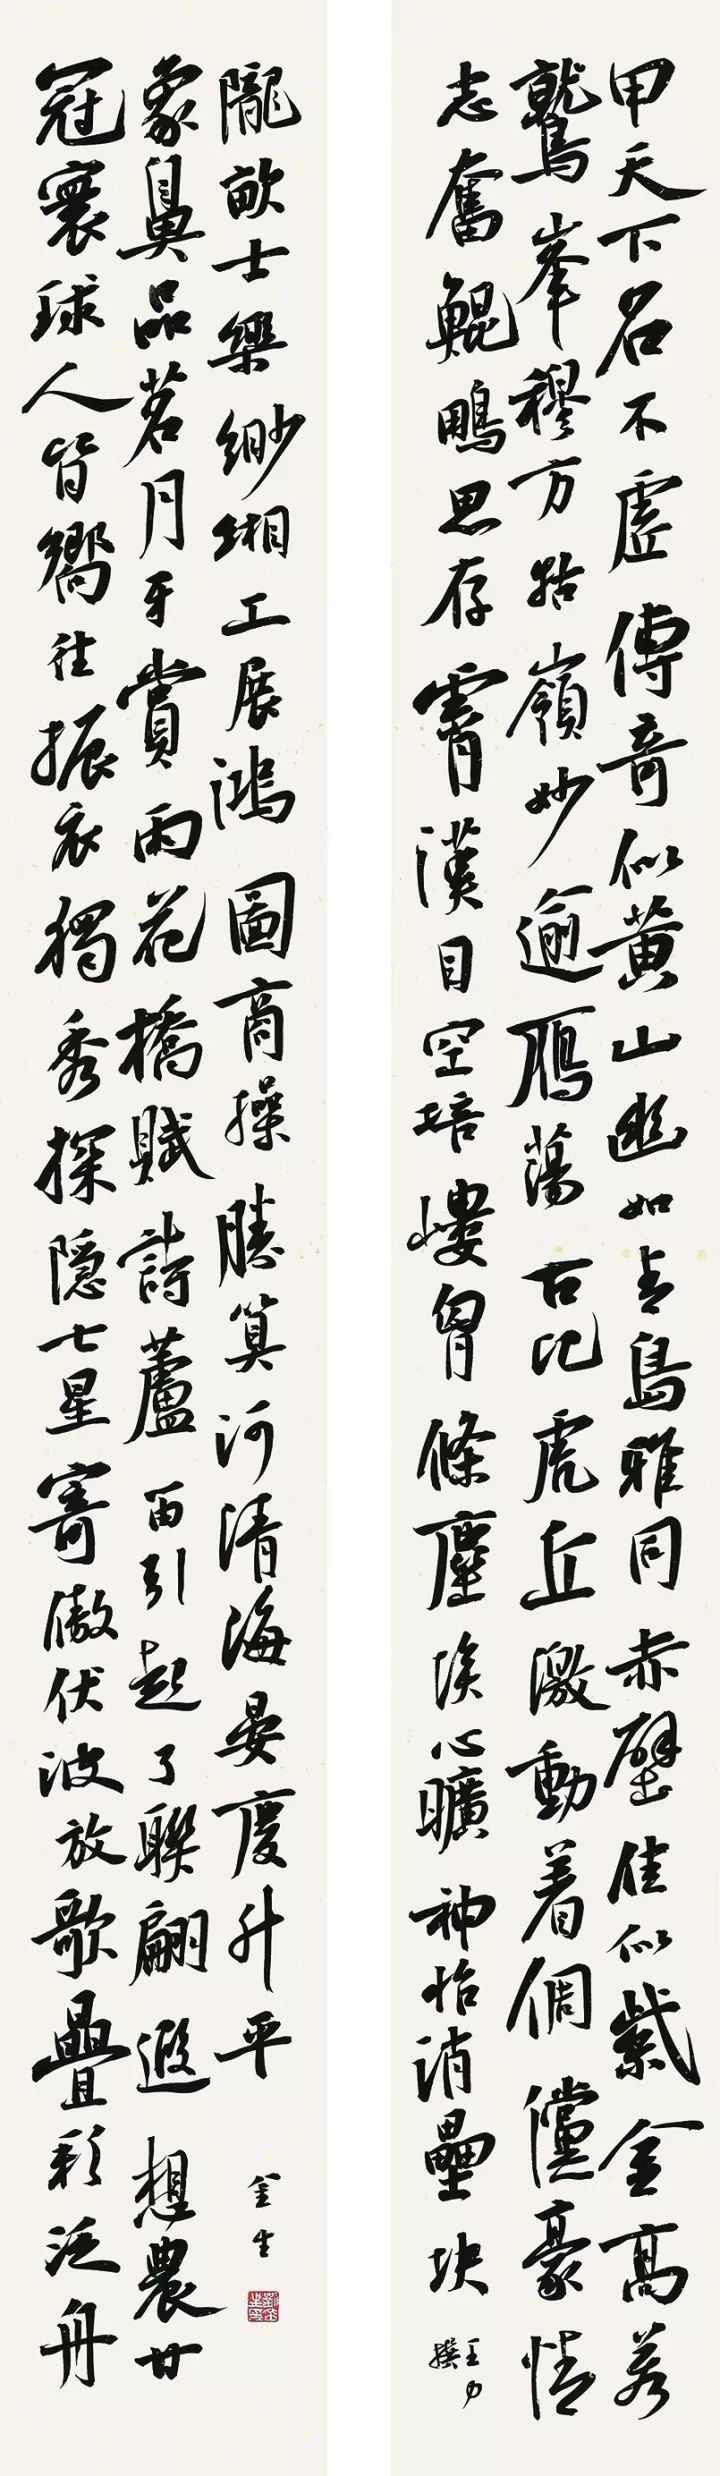 甲天下名不虛傳奇似黃山幽如青島雅同赤壁佳似紫金高若
鷲峯穆方牯嶺妙逾鴈蕩古比虎丘激動着倜儻豪情
志奮鯤鵬思存霄漢目空培塿胷滌塵埃心曠神怡消壘塊
王力
撰
冠寰球人皆嚮往振衣獨秀探隱七星寄傲伏波放歌疊彩泛舟
象鼻品茗月牙賞雨花橋賦詩蘆笛引起了聯翩遐想農甘
隴畝士樂緲緗工展鴻圖商操勝算河清海晏慶升平
金生